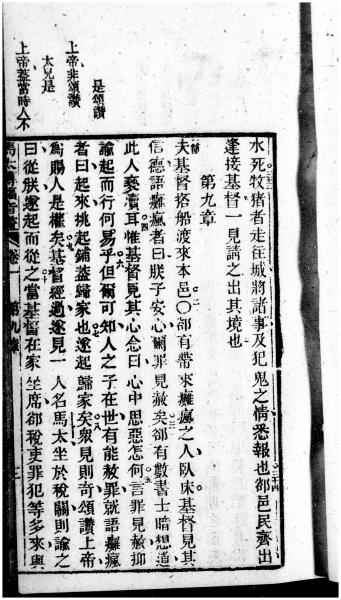 水死牧猪者走往城將諸事及犯鬼之情悉報也卻邑民齊出
逢接基督一見請之出其境也
第九章
夫基督搭船渡來本邑○卻有帶來癱瘋之人臥床基督見其
信德語癱瘋者曰朕子安心爾罪見赦矣卻有數書士暗想道
此人褻瀆耳惟基督見其心念曰心中思惡怎何言罪見赦抑
諭起而行何易乎但爾可知人之子在世有能赦罪就語癱瘋
者曰起來挑起鋪蓋歸家也遂起歸家矣衆見則奇頌讚上帝
爲賜人是權矣基督經過遂見一人名馬太坐於稅關則諭之
曰從朕遂起而從之當基督在家坐席卻稅吏罪犯等多來與
是頌讚
上帝非頌讚
太兄是
上帝蓋當時人不
馬太 卷一 第九章